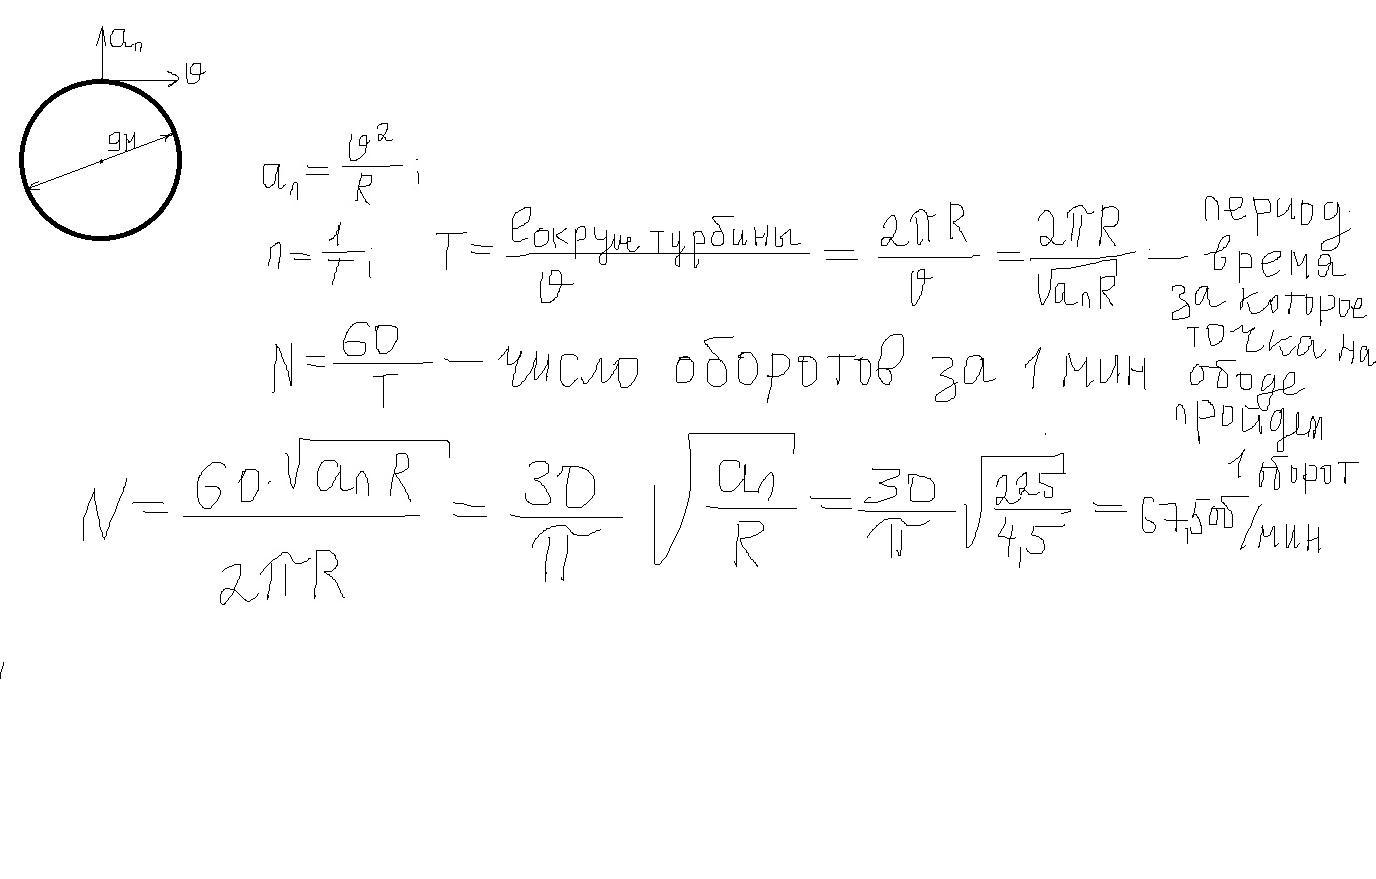 aₙ
υ
9м
aₙ = υ²/R ;
n = 1/T ; T = ℓокружн турбины/υ = 2πR/υ = 2πR/√(aₙR) — период. время за которое точка на ободе пройдет 1 оборот
N = 60/T — число оборотов за 1 мин
N = 60·√(aₙR)/2πR = 30/π √(aₙ/R) = 30/π √(225/4,5) = 67,5 об/мин